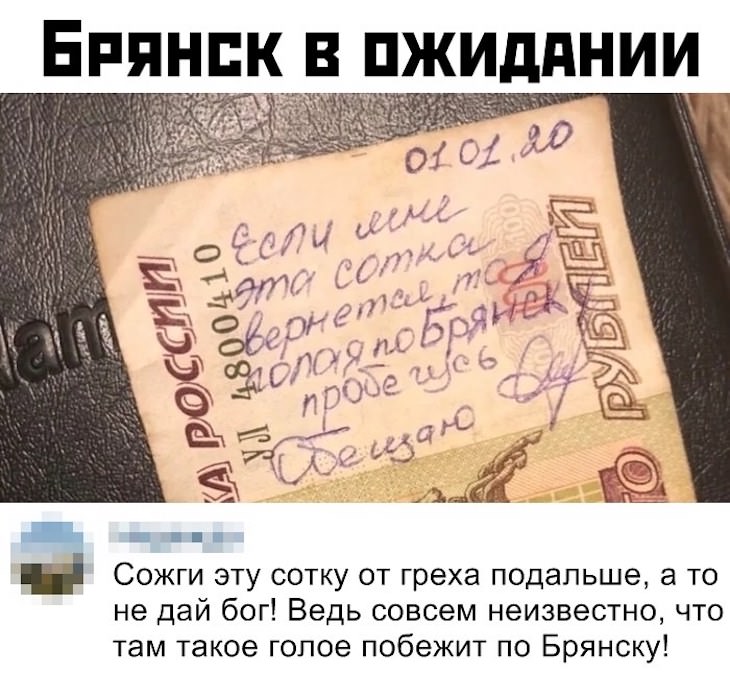 БРЯНСК В ОЖИДАНИИ
01.01.20
Если мне
эта сотка
вернется, то я
голая по Брянску
пробегусь
Обещаю
КА РОССИИ
УЛ 4800410
РУБЛЕЙ
100
am
ТО
Сожги эту сотку от греха подальше, а то
не дай бог! Ведь совсем неизвестно, что
там такое голое побежит по Брянску!